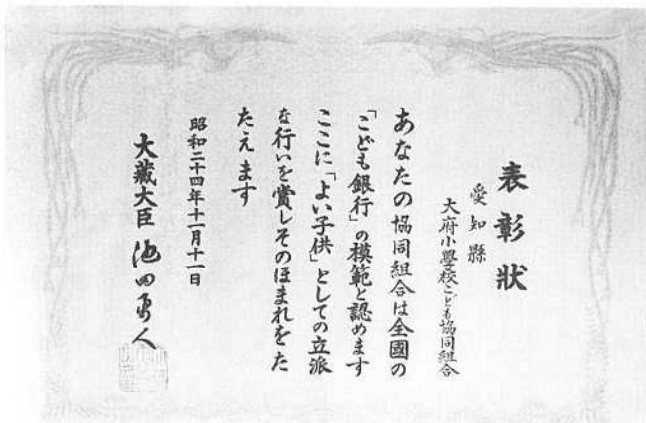 表彰状
愛知縣
大府小學校こども協同組合
あなたの協同組合は全國の
「こども銀行」の模範と認めます
ここに「よい子供」としての立派
な行いを賞しそのほまれをた
たえます
昭和二十四年十一月十一日
大藏大臣 池田勇人